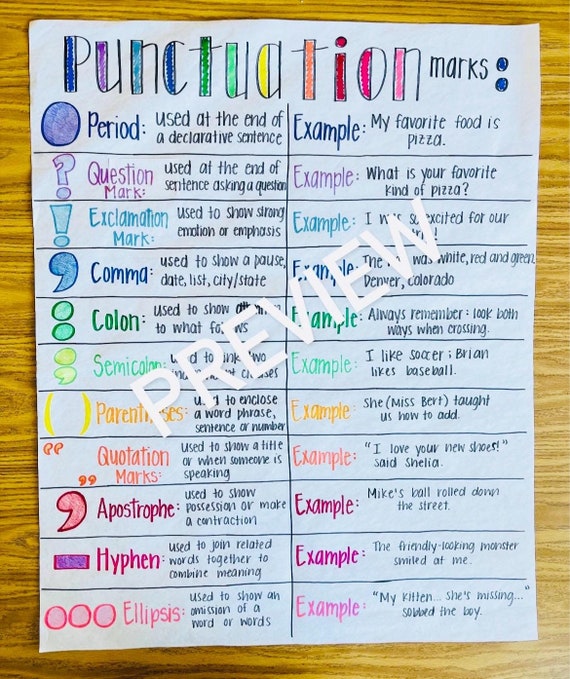 Punctuation marks:
Period: used at the end of
a declarative sentence
Example: My favorite food is
pizza.
Question
Mark:
used at the end of
sentence asking a question
Example: What is your favorite
kind of pizza?
Exclamation
Mark:
used to show strong
emotion or emphasis
Example: I was so excited for our
Comma: used to show a pause,
date, list, city/state
Example: The was white, red and green
Denver, Colorado
Colon: used to show
to what
Example: Always remember: look both
ways when crossing.
Semicolon: used to link two
independent clauses
Example: I like soccer; Brian
likes baseball.
( ) Parentheses: used to enclose
a word phrase,
sentence or number
Example: She (Miss Bert) taught
us how to add.
Quotation
Marks:
used to show a title
or when someone is
speaking
Example: "I love your new shoes!"
said Shelia.
Apostrophe: used to show
possession or make
a contraction
Example: Mike's ball rolled down
the street.
Hyphen: used to join related
words together to
combine meaning
Example: The friendly-looking monster
smiled at me.
Ellipsis: used to show an
omission of a
word or words
Example: "My kitten... she's missing..."
sobbed the boy.
PREVIEW